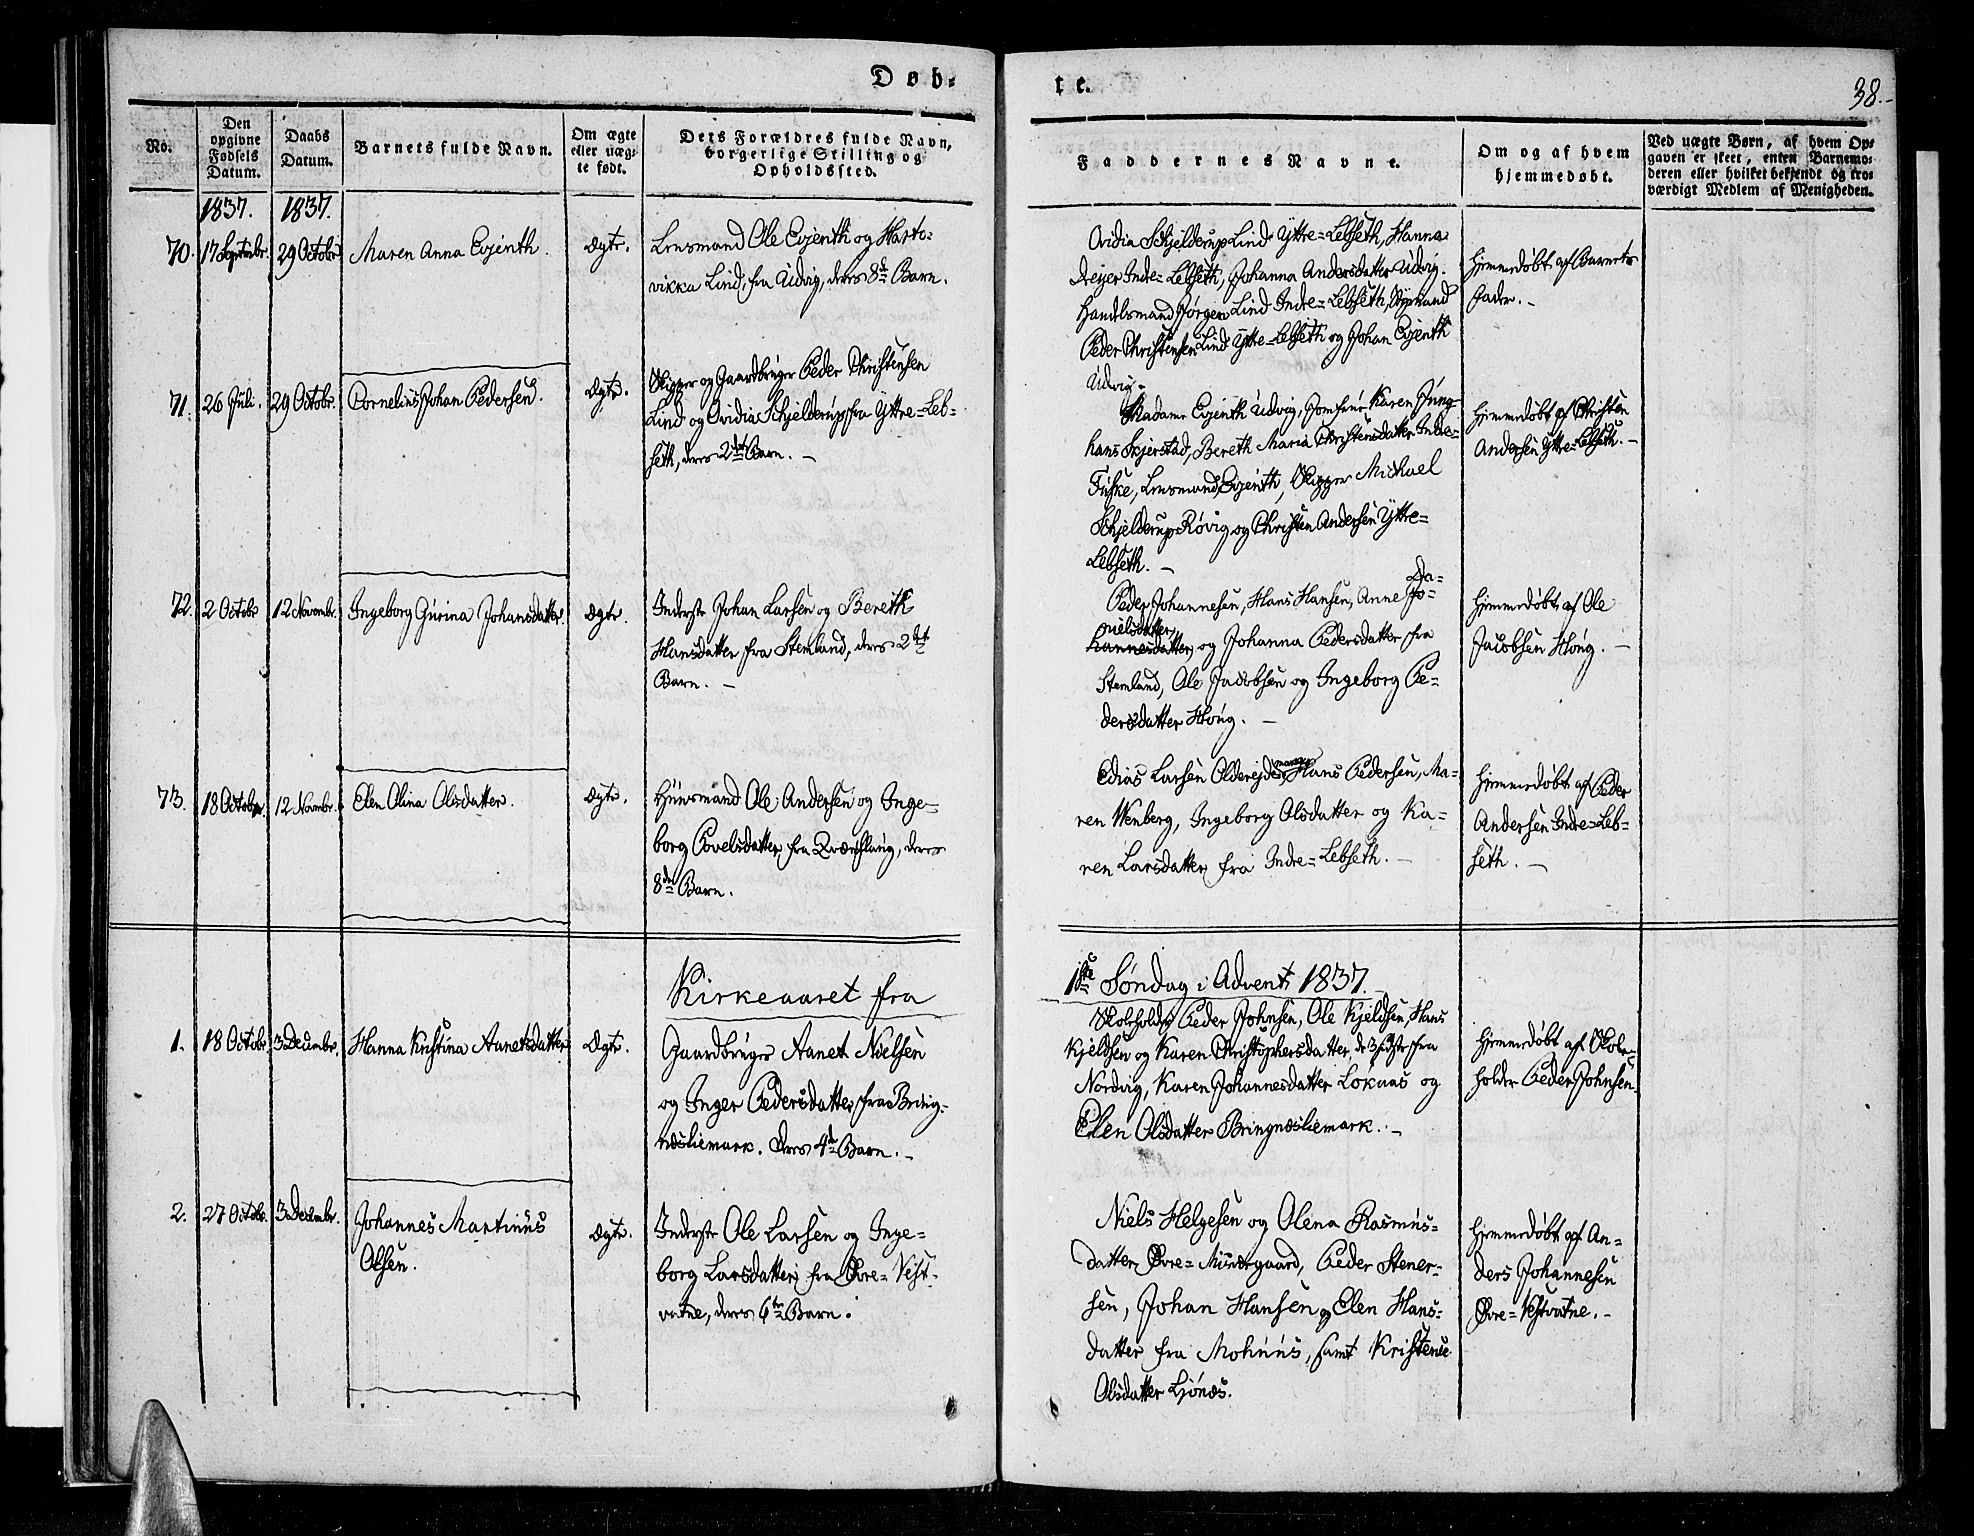 Døb-
te.
38.
No.
Den opgivne Fødsels Datum.
Daabs Datum.
Barnets fulde Navn.
Om ægte eller uægte født.
Dets Forældres fulde Navn, borgerlige Stilling og Opholdssted.
Faddernes Navne.
Om og af hvem hjemmedøbt.
Ved uægte Børn, af hvem Opgaven er skeet, enten Barnemoderen eller hvilket bekjendt og troværdigt Medlem af Menigheden.
1837. 1837.
70. 17 Septembr. 29 Octobr. Maren Anna Evjenth. Ægte.
Lensmand Ole Evjenth og Harto-
vikka Lind, fra Udvig, deres 8de Barn.
Ovidia Schjelderup Lind Yttre-Lebseth, Hanna
Dreyer Indre-Lebseth, Johanna Andersdatter Udvig.
Handelsmand Jørgen Lind Indre-Lebseth,
Peder Christensen Lind Yttre-Lebseth og Johan Evjenth
Udvig.
Hjemmedøbt af Barnets
Fader.
71. 26 Juli. 29 Octobr. Cornelius Johan Pedersen. Ægte.
Skipper og Gaardbruger Peder Christensen
Lind og Ovidia Schjelderup fra Yttre-Leb-
seth, deres 2det Barn. —
Madame Evjenth Udvig, Jomfrue Karen Jung-
hans Skjerstad, Bereth Maria Christensdatter Indre-
Fuske, Lensmand Evjenth, Skipper Michael
Schjelderup Røvig og Christen Andersen Yttre-
Lebseth. —
Hjemmedøbt af Christen
Andersen Yttre-Lebseth. —
72. 2 Octobr. 12 Novembr. Ingeborg Gurina Johansdatter. Ægte.
Inderst Johan Larsen og Bereth
Hansdatter fra Stemland, deres 2det
Barn. —
Peder Johannesen, Hans Hansen, Anne Jo- Da-
nielsdatter
hannesdatter, og Johanna Pedersdatter fra
Stemland, Ole Jacobsen og Ingeborg Pe-
dersdatter Houg. —
Hjemmedøbt af Ole
Jacobsen Houg. —
73. 18 Octobr. 12 Novembr. Elen Olina Olsdatter. Ægte.
Huusmand Ole Andersen og Inge-
borg Povelsdatter, fra Qvænflaug, deres
8de Barn.
Edias Larsen Hans Pedersen, Ma-
ren Wenberg, Ingeborg Olsdatter og Ka-
ren Larsdatter, fra Indre-Lebseth. —
Hjemmedøbt af Peder
Andersen Indre-Leb-
seth. —
Kirkeaaret fra
1ste Søndag i Advent 1837.
1. 18 Octobr. 3 Decembr. Hanna Kristina Aanetsdatter. Ægte.
Gaardbruger Aanet Nielsen
og Inger Pedersdatter, fra Bring-
nesliemark. Deres 4de Barn. —
Skoleholder Peder Johnsen, Ole Kjeldsen, Hans
Kjeldsen og Karen Christophersdatter, de 3 sidste fra
Nordvig, Karen Johannesdatter Løkaas og
Elen Olsdatter Bringnesliemark. —
Hjemmedøbt af Skole-
holder Peder Johnsen.
2. 27 Octobr. 3 Decembr. Johannes Martinus
Olsen. Ægte.
Inderst Ole Larsen og Inge-
borg Larsdatter, fra Øvre-Vest-
vatne, deres 6te Barn.
Niels Helgesen og Olena Rasmus-
datter Øvre-Misværgaard, Peder Stener-
sen, Johan Hansen og Elen Hans-
datter fra Mohuus, samt Kristense
Olsdatter Ljønes.
Hjemmedøbt af An-
ders Johannesen
Øvre-Vestvatne. —